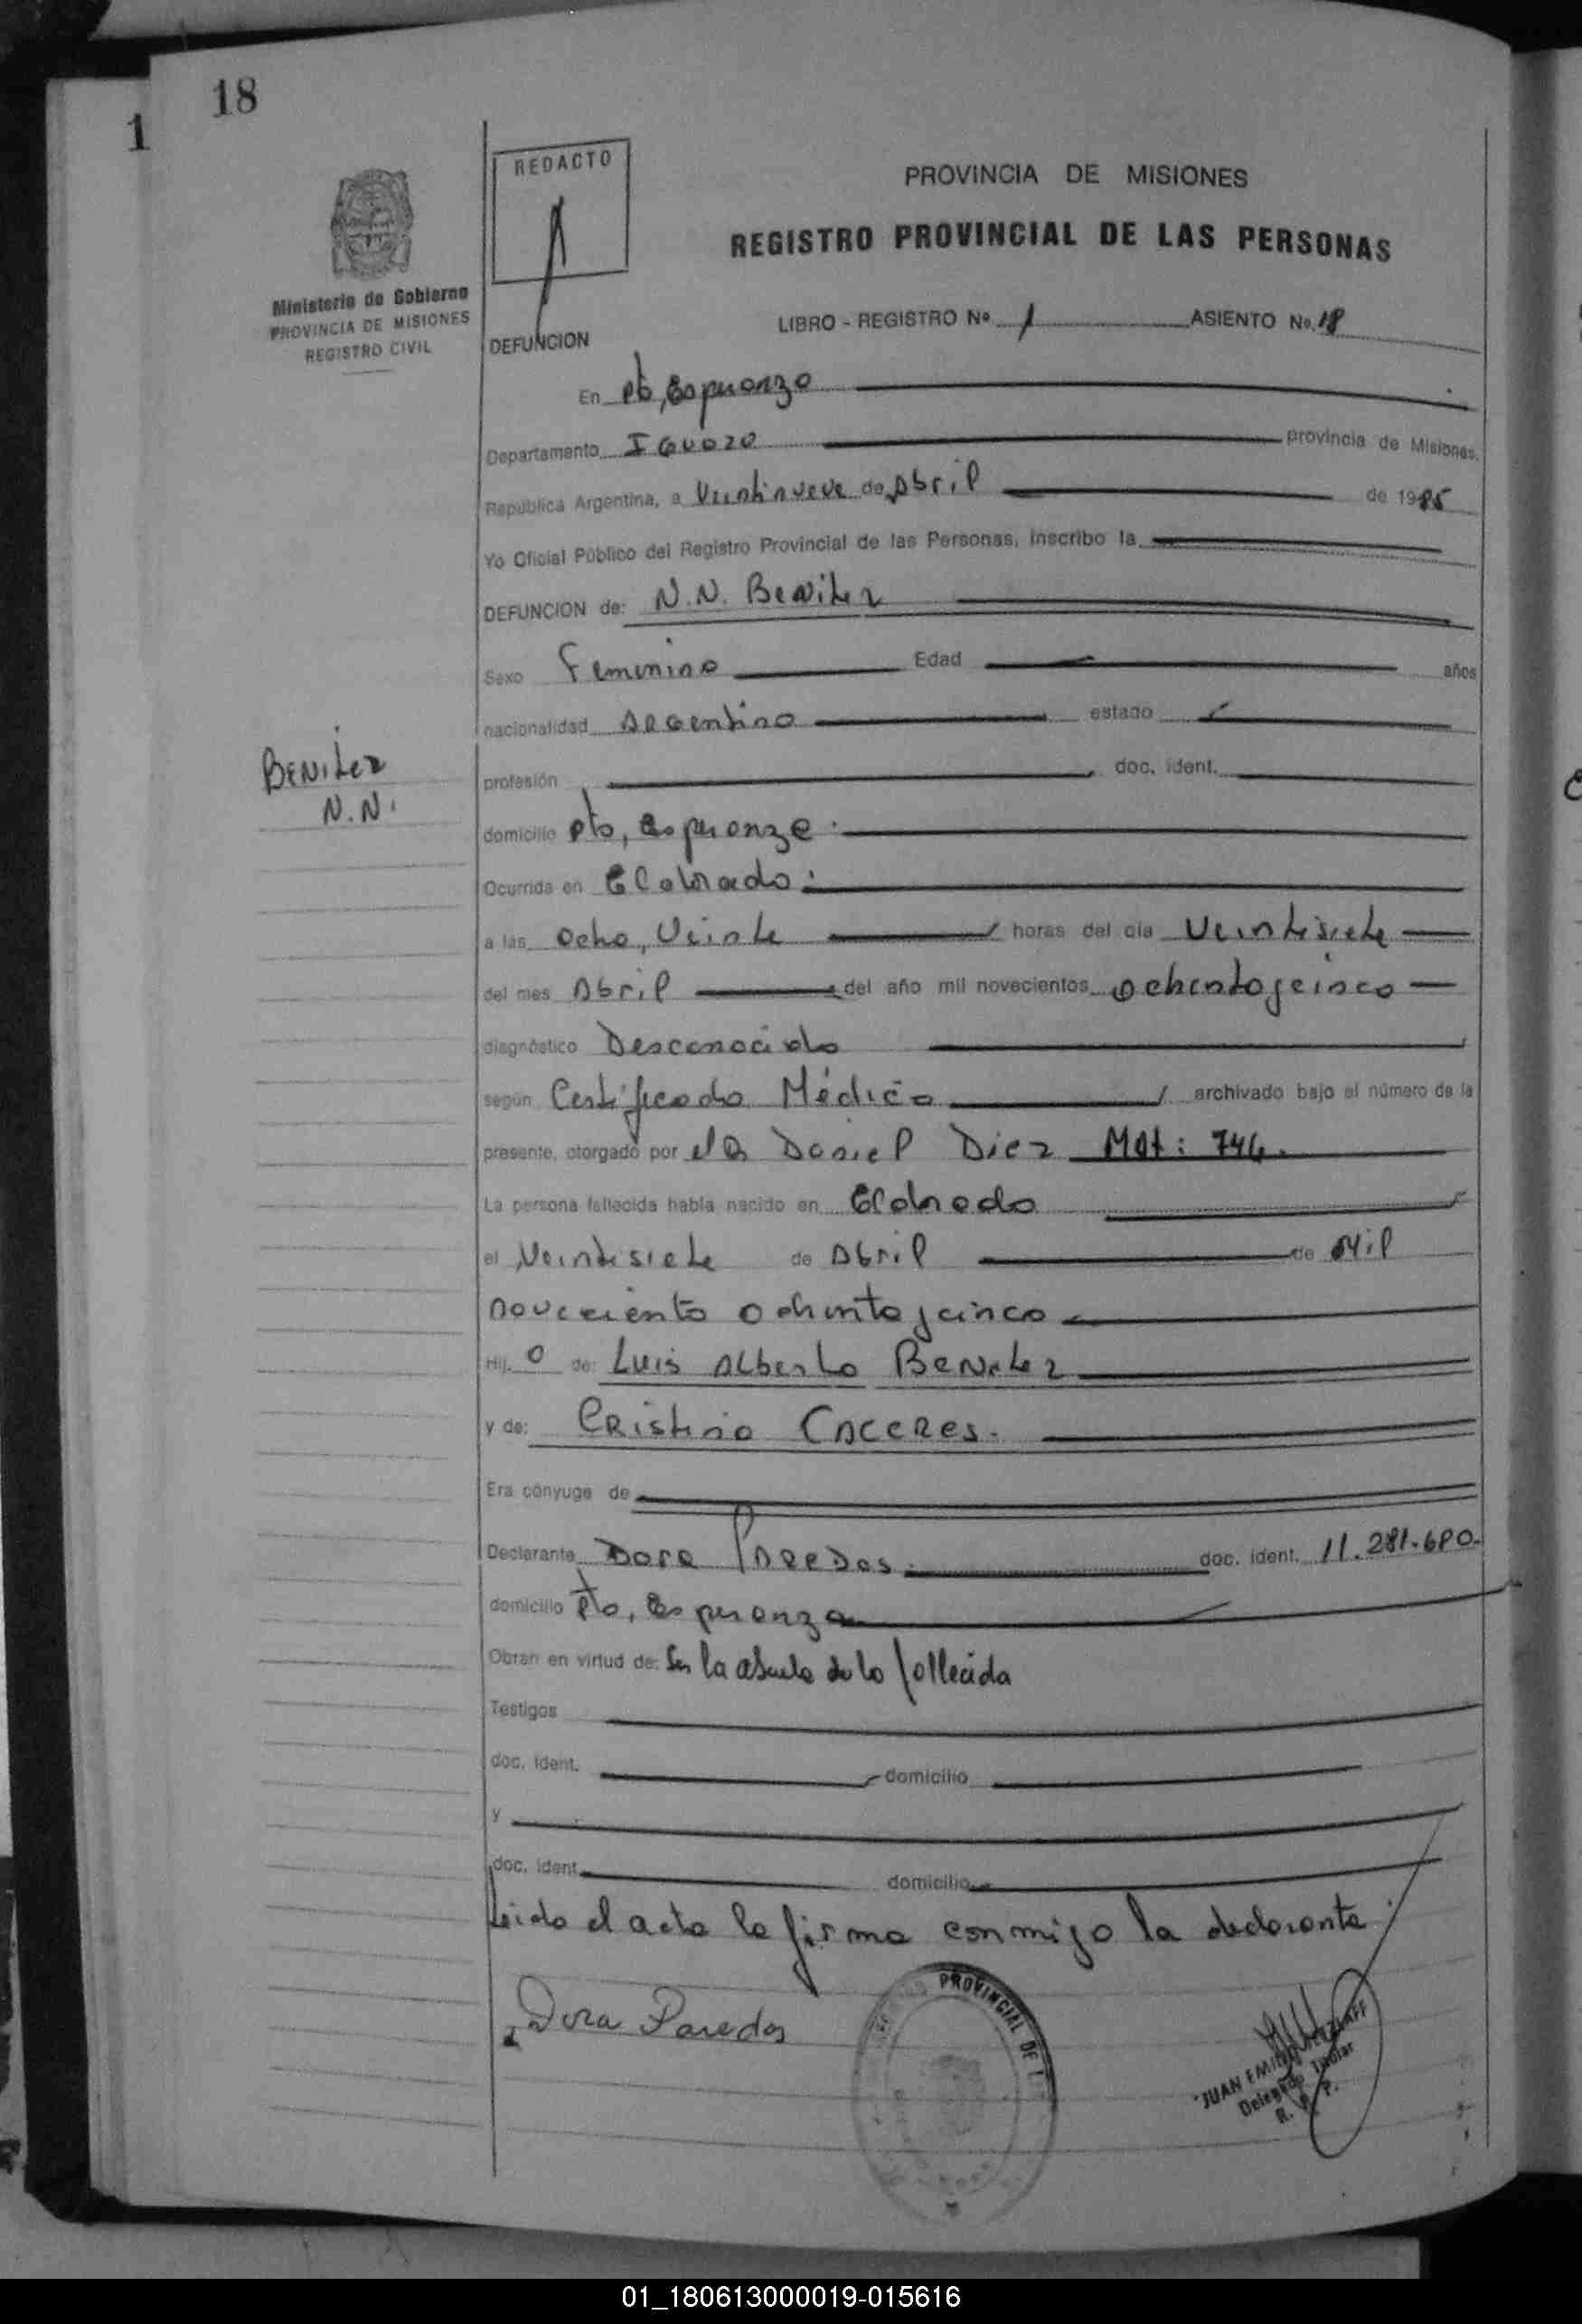 18
1
REDACTO
PROVINCIA DE MISIONES
REGISTRO PROVINCIAL DE LAS PERSONAS
Ministerio de Gobierno
PROVINCIA DE MISIONES
REGISTRO CIVIL
LIBRO - REGISTRO Nº 1 ASIENTO No. 18
DEFUNCION
En Pto, Esperanza
Departamento Iguazo provincia de Misiones.
República Argentina, a Veintinueve de Abril de 1985
Yo Oficial Público del Registro Provincial de las Personas, inscribo la
DEFUNCION de: N.N. Benitez
Sexo Femenino Edad años
nacionalidad Argentina estado
Benitez
N.N.
profesión doc. ident.
domicilio Pto, Esperanza
Ocurrida en Eldorado
a las ocho, Veinte horas del día Veintisiete
del mes Abril del año mil novecientos ochentaycinco
diagnóstico Desconocido
según Certificado Médico archivado bajo el número de la
presente, otorgado por el Dr Daniel Diez Mat: 744.
La persona fallecida había nacido en Eldorado
el Veintisiete de Abril de Mil
noveciento ochentaycinco
Hij. a de: Luis Alberto Benitez
y de: Cristina Caceres.
Era cónyuge de
Declarante Dora Paredes. doc. ident. 11.281.680.
domicilio Pto, Esperanza
Obran en virtud de: Ser la abuela de la fallecida
Testigos
doc. ident. domicilio
y
doc. ident. domicilio
Leida el acta la firma conmigo la declarante.
Dora Paredes
PROVINCIAL DE L
JUAN EMILIO
Delegado Titular
R. P. P.
01_180613000019-015616